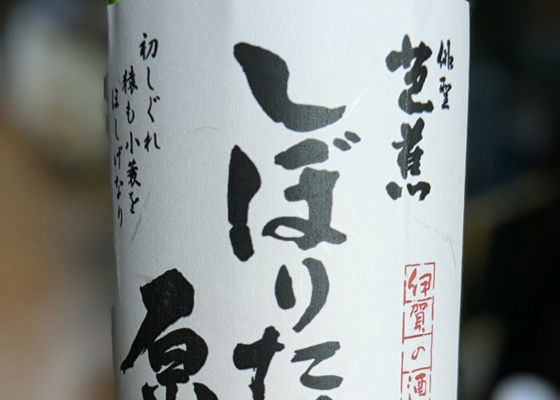 俳聖
芭蕉
伊賀の酒
しぼりた
原
初しぐれ
猿も小蓑を
ほしげなり